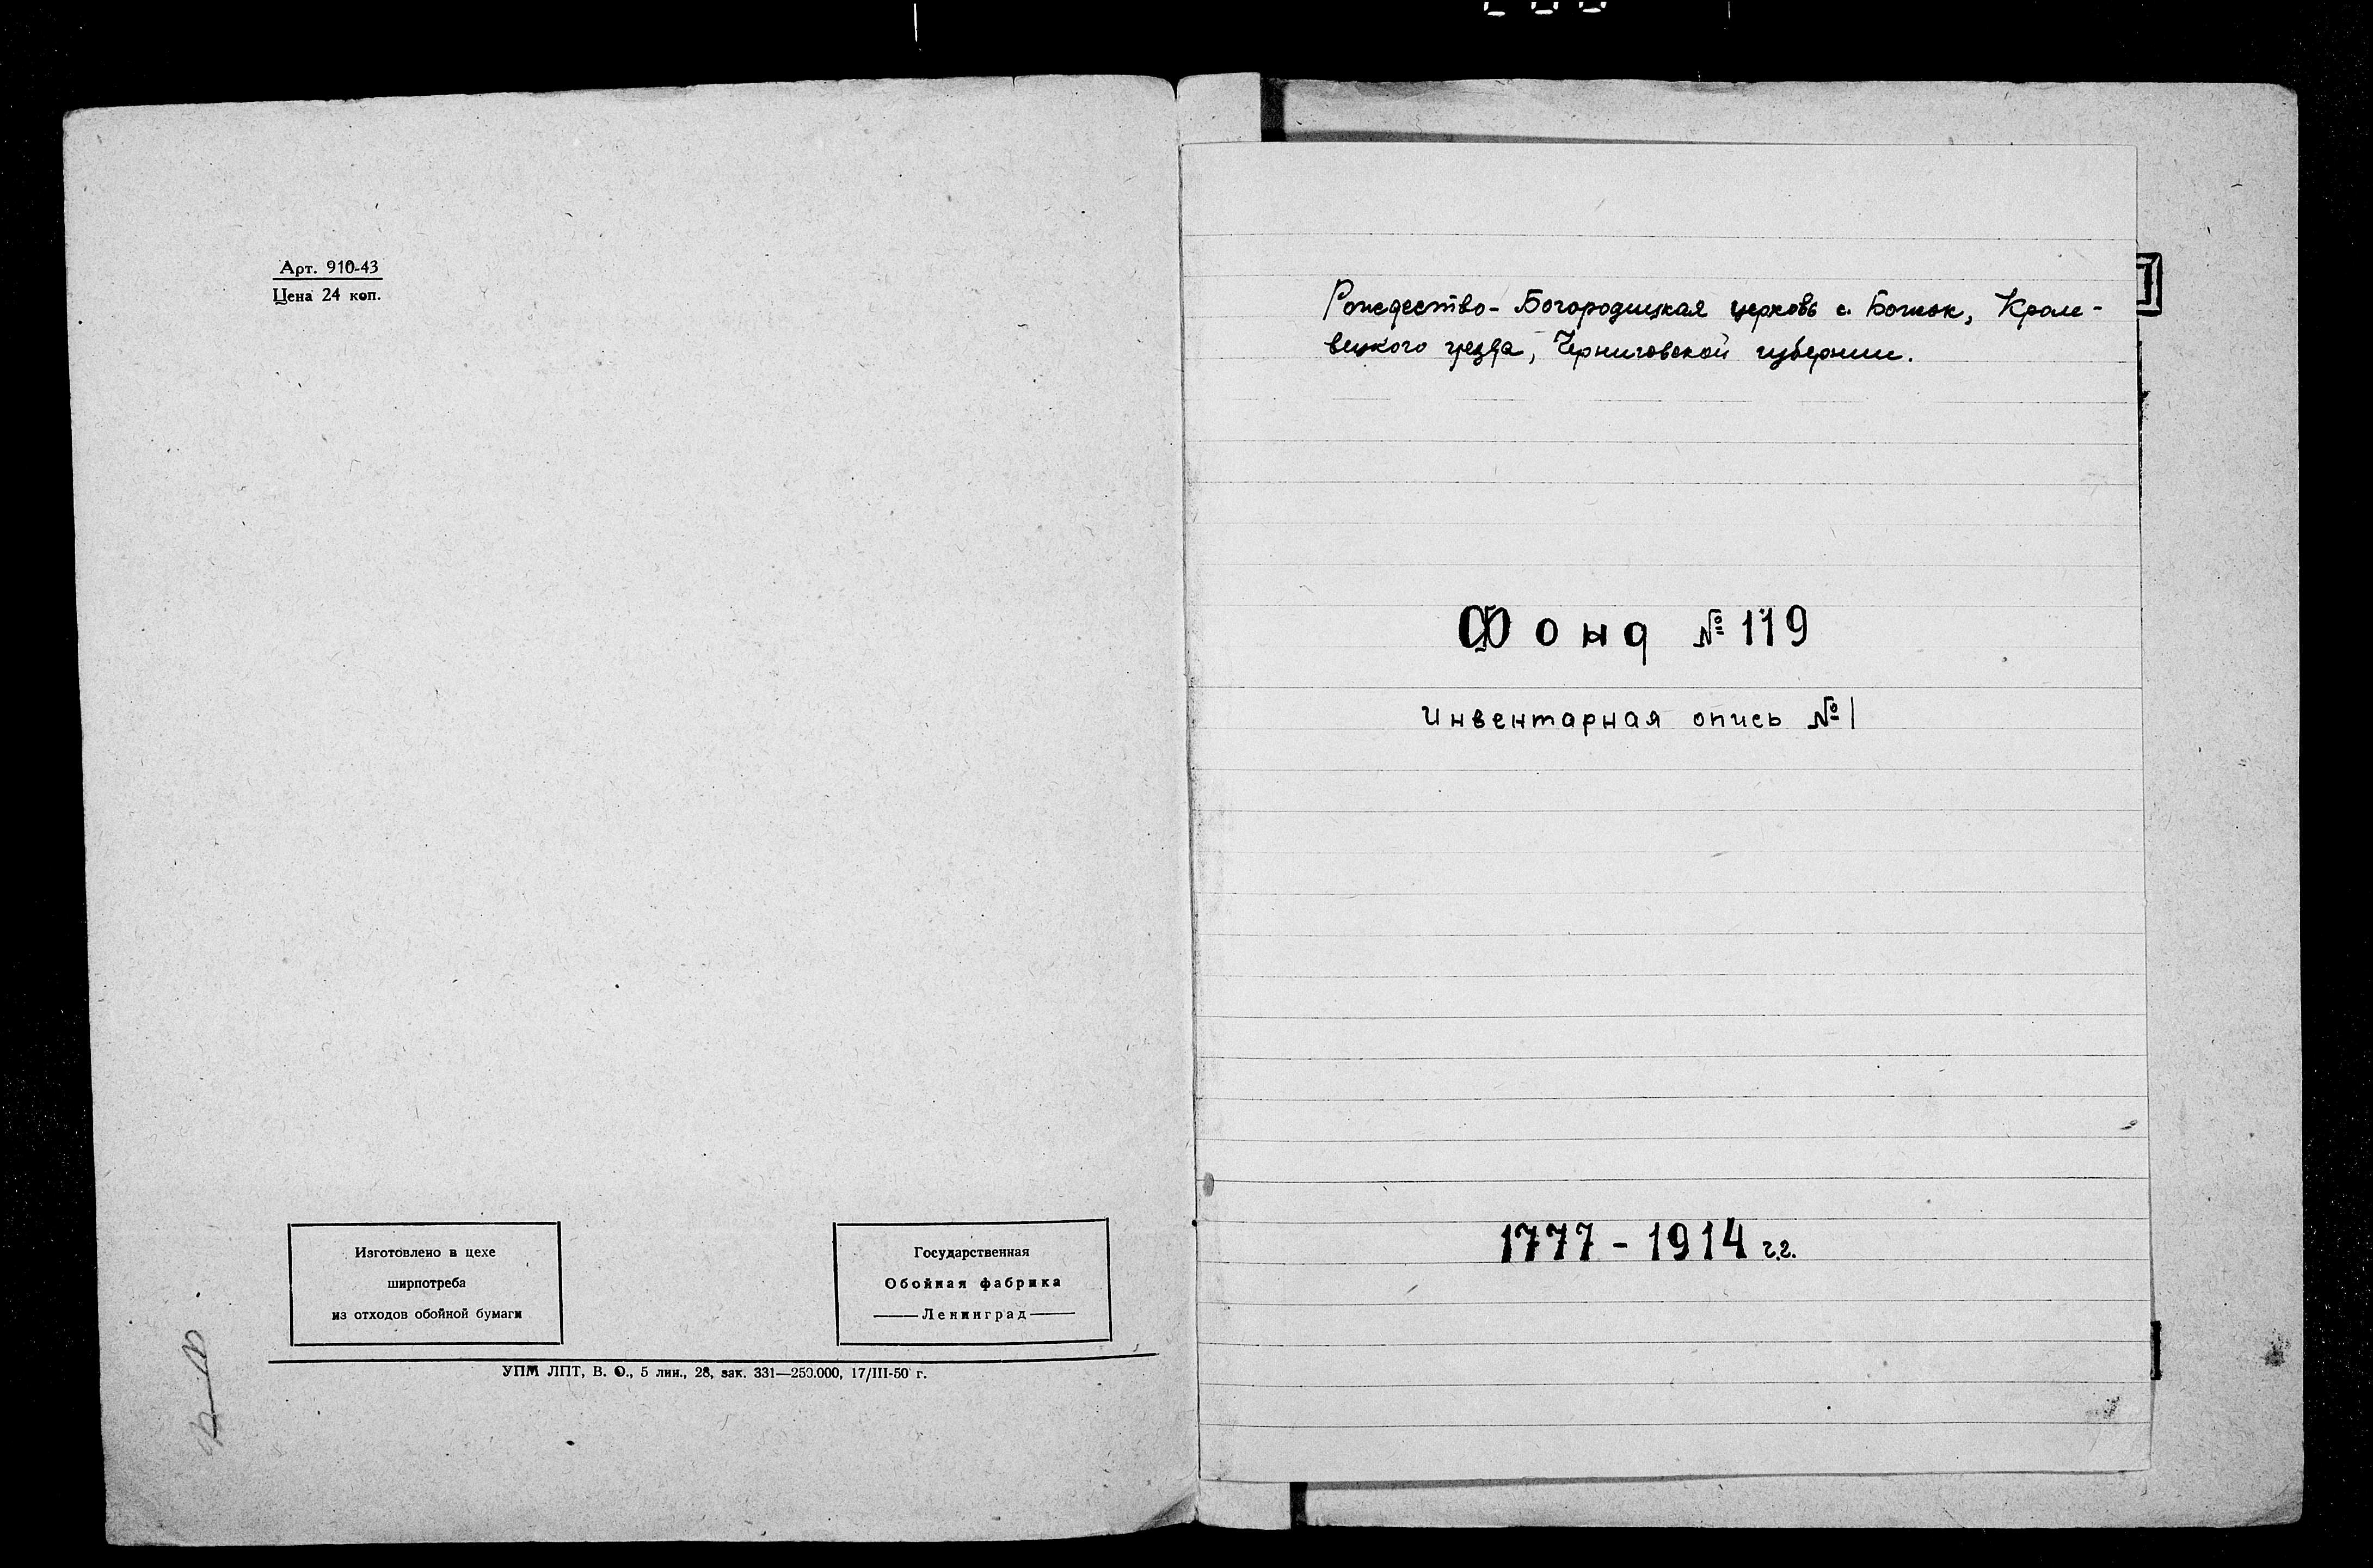 Арт. 910-43
Цена 24 коп.
Изготовлено в цехе
ширпотреба
из отходов обойной бумаги
Государственная
Обойная фабрика
Ленинград
УПМ ЛПТ, В. О., 5 лин., 28, зак. 331—250.000, 17/III-50 г.
Рождество-Богородицкая церковь с. Божок, Кроле-
вецкого уезда, Черниговской губернии.
Фонд № 119
Инвентарная опись № 1
1777 - 1914 г.г.